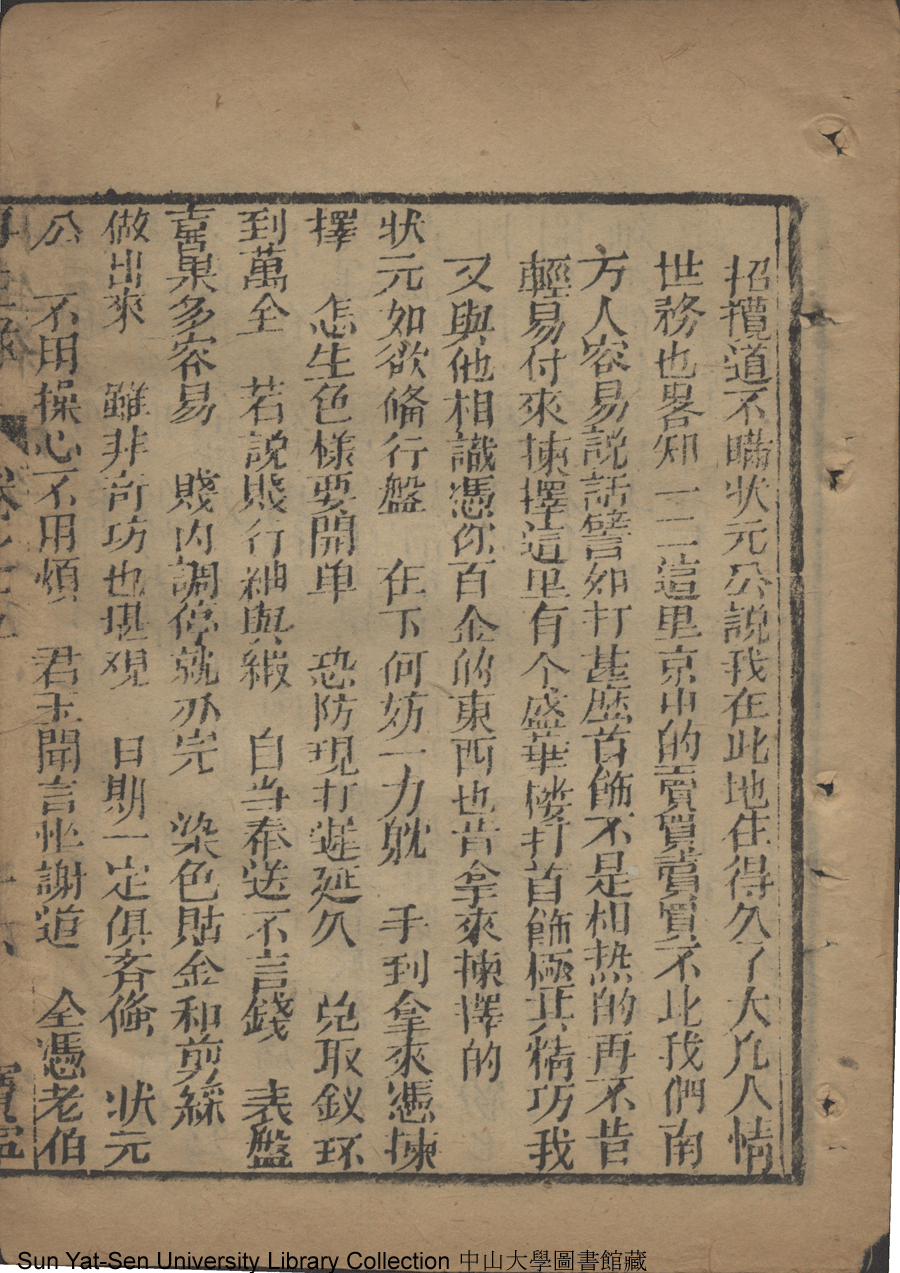 招攬道不瞞状元公說我在此地住得久了大凡人情
世務也畧知一二這里京中的賣買賣買不比我們南
方人容易說話譬如打甚麽首飾不是相热的再不肯
輕易付來揀擇這里有个盛華樓打首飾極其精巧我
又與他相識憑你百金的東西也肯拿來揀擇的
状元如欲俻行盤　在下何妨一力躭　手到拿來憑揀
擇　怎生色樣要開单　恐防現打遲延久　兑取釵环
到萬全　若說賍行紬與緞　自当奉送不言錢　表盤
喜菓多容易　賤内調停就办完　染色貼金和剪綵
做出來　雖非奇巧也堪观　日期一定俱斉俻　状元
公　不用操心不用煩　君玉聞言忙謝道　全憑老伯